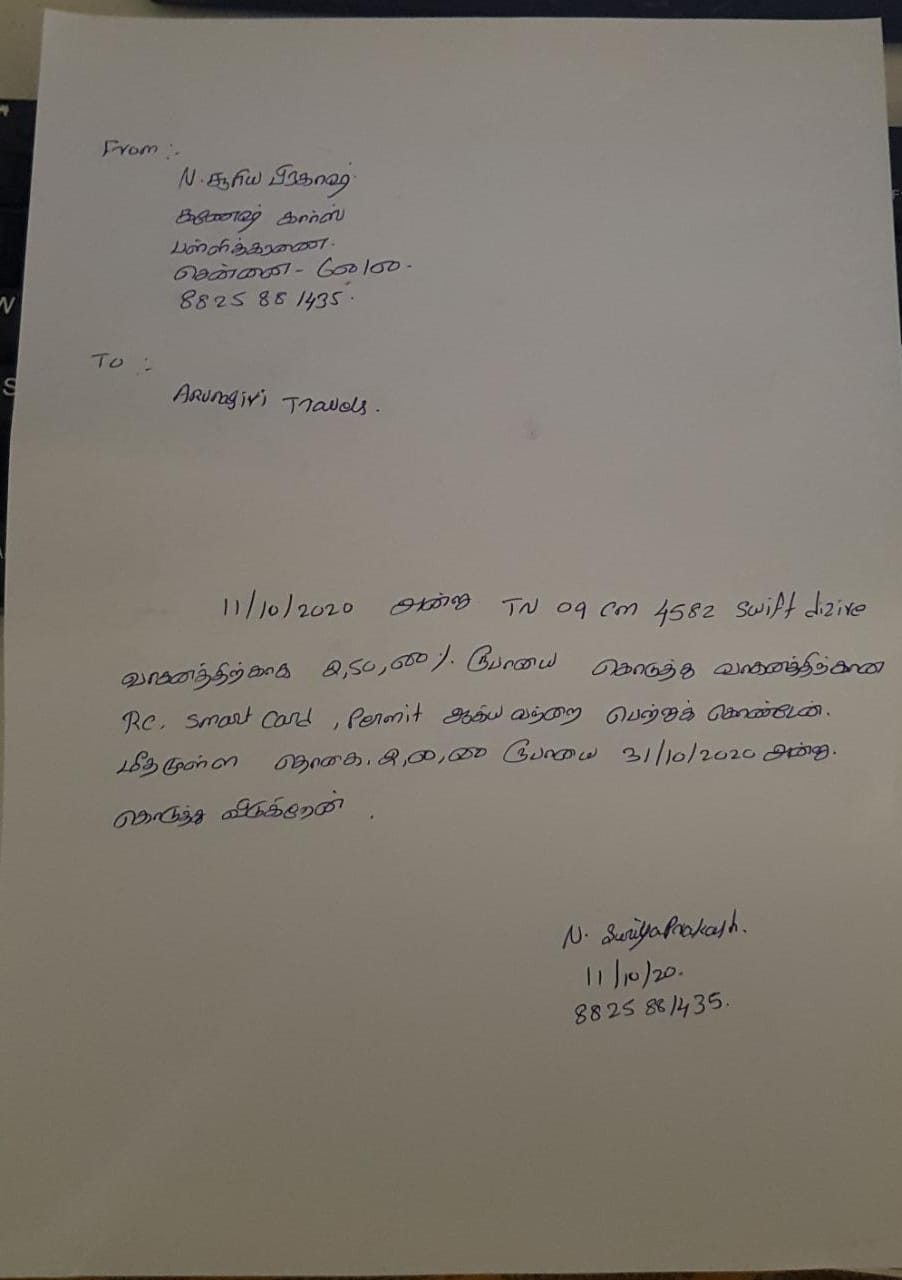 From :-
N. சூரிய பிரகாஷ்
கணேஷ் கார்ஸ்
பள்ளிக்கரணை.
சென்னை - 600100.
8825 881435.
To :-
Arunagiri Travels.
11/10/2020 அன்று TN 09 CM 4582 Swift dizire
வாகனத்திற்காக 2,50,000/. ரூபாயை கொடுத்து வாகனத்திற்கான
RC, Smart Card, Permit ஆகிய வற்றை பெற்றுக் கொண்டேன்.
மீதமுள்ள தொகை. 2,00,000 ரூபாயை 31/10/2020 அன்று.
கொடுத்து விடுகிறேன் .
N. SuriyaPrakash.
11/10/20.
8825 881435.